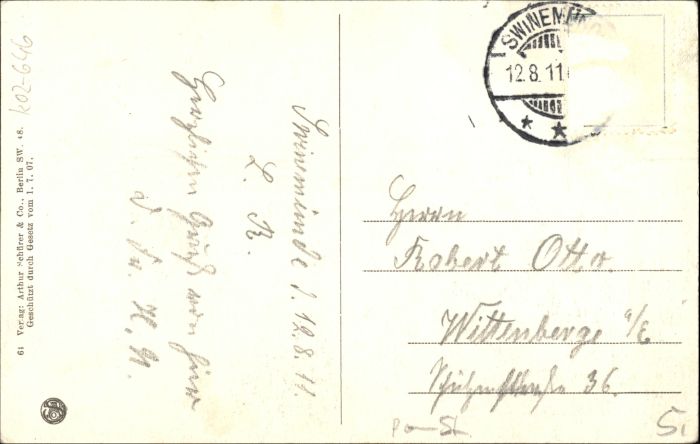 SWINEMÜ
12.8.11
Swinemünde d. 12.8.11.
L. R.
Herzlichen Gruß von hier
d. Fr. K. N.
Herrn
Robert Otto.
Wittenberge a/E
Schützenstraße 36.
61 Verlag: Arthur Schürer & Co., Berlin SW. 48.
Geschützt durch Gesetz vom 1. 7. 07.
K02-646